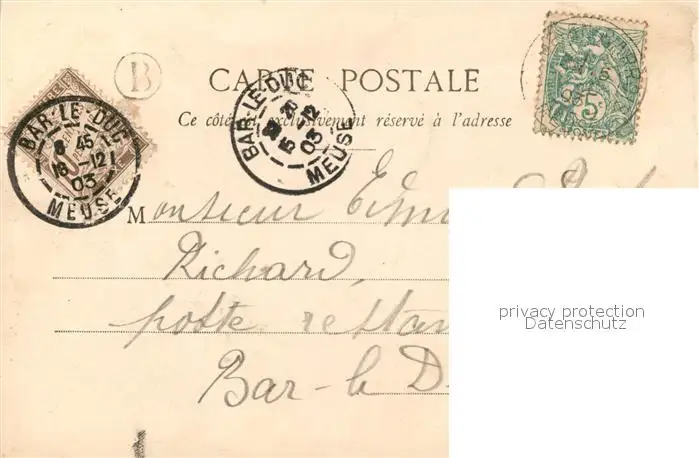 B
CARTE POSTALE
Ce côté exclusivement réservé à l'adresse
BAR-LE-DUC
8 45
16 -12
03
MEUSE
BAR-LE-DUC
15 -12
03
MEUSE
5
Monsieur
Richard,
poste restan
Bar-le D
privacy protection
Datenschutz